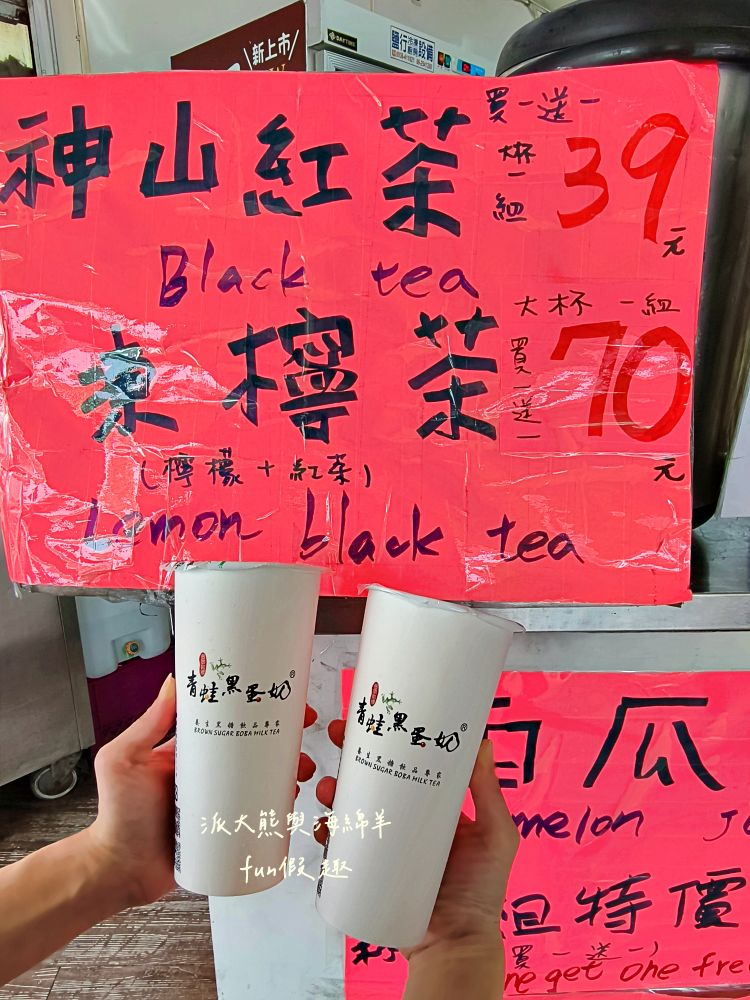 新上市
DAYTIME
鹽行冷凍廚房設備
神山紅茶
買一送一
大杯一組
39元
Black tea
凍檸茶
大杯 一組
買一送一
70元
(檸檬+紅茶)
Lemon black tea
青蛙黑蛋奶®
養生黑糖飲品專家
BROWN SUGAR BOBA MILK TEA
青蛙黑蛋奶®
養生黑糖飲品專家
BROWN SUGAR BOBA MILK TEA
派大熊與海綿羊
fun假趣
瓜
melon
組特價
(買一送一)
get one fre